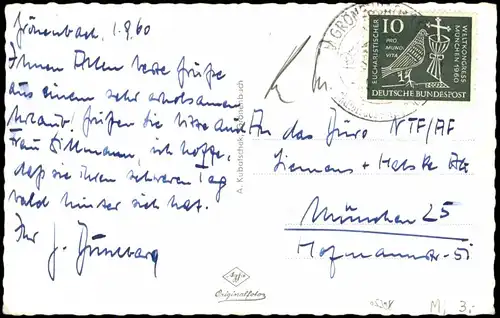 Grönenbach, 1.9.60
Ihnen Allen beste Grüße
aus einem sehr erholsamen
Urlaub! Grüßen Sie bitte auch
Frau Dittmann, ich hoffe,
daß sie ihren schweren Tag
bald hinter sich hat.
Ihr J.
A. Kubutschek, Grönenbach
Agfa
Originalfoto
GRÖNENBACH
10
PRO MUNDI VITA
EUCHARISTISCHER
WELTKONGRESS
MÜNCHEN 1960
DEUTSCHE BUNDESPOST
An das Büro NTF/AF
Siemens + Halske AG
München 25
Hofmannstr. 51
M, 3,-